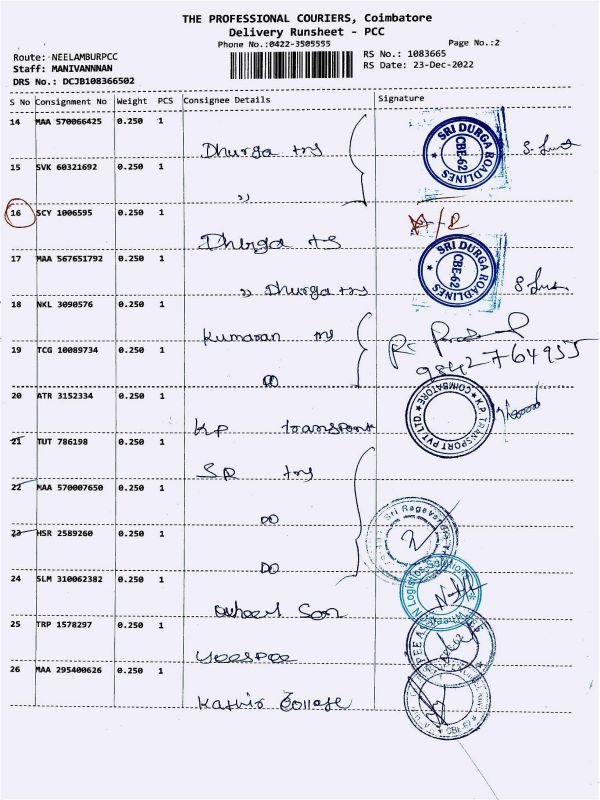 THE PROFESSIONAL COURIERS, Coimbatore
Delivery Runsheet - PCC
Phone No.:0422-3505555
Page No.:2
Route: NEELAMBURPCC
RS No.: 1083665
Staff: MANIVANNNAN
RS Date: 23-Dec-2022
DRS No.: DCJB108366502
S No Consignment No Weight PCS Consignee Details Signature
14 MAA 570066425 0.250 1 Dhurga trs
SRI DURGA ROADLINES CBE-62
15 SVK 60321692 0.250 1 ,,
16 SCY 1006595 0.250 1 Dhurga ts
17 MAA 567651792 0.250 1 ,, Dhurga trs
SRI DURGA ROADLINES CBE-62
18 NKL 3090576 0.250 1 Kumaran trs
19 TCG 10089734 0.250 1 DO
9842764955
20 ATR 3152334 0.250 1 KP transport
K.P. TRANSPORT PVT. LTD. COIMBATORE
21 TUT 786198 0.250 1 SR trs
22 MAA 570007650 0.250 1 DO
23 HSR 2589260 0.250 1 DO
24 SLM 310062382 0.250 1 Son
Logistics Solution
25 TRP 1578297 0.250 1 
26 MAA 295400626 0.250 1 Kathir College